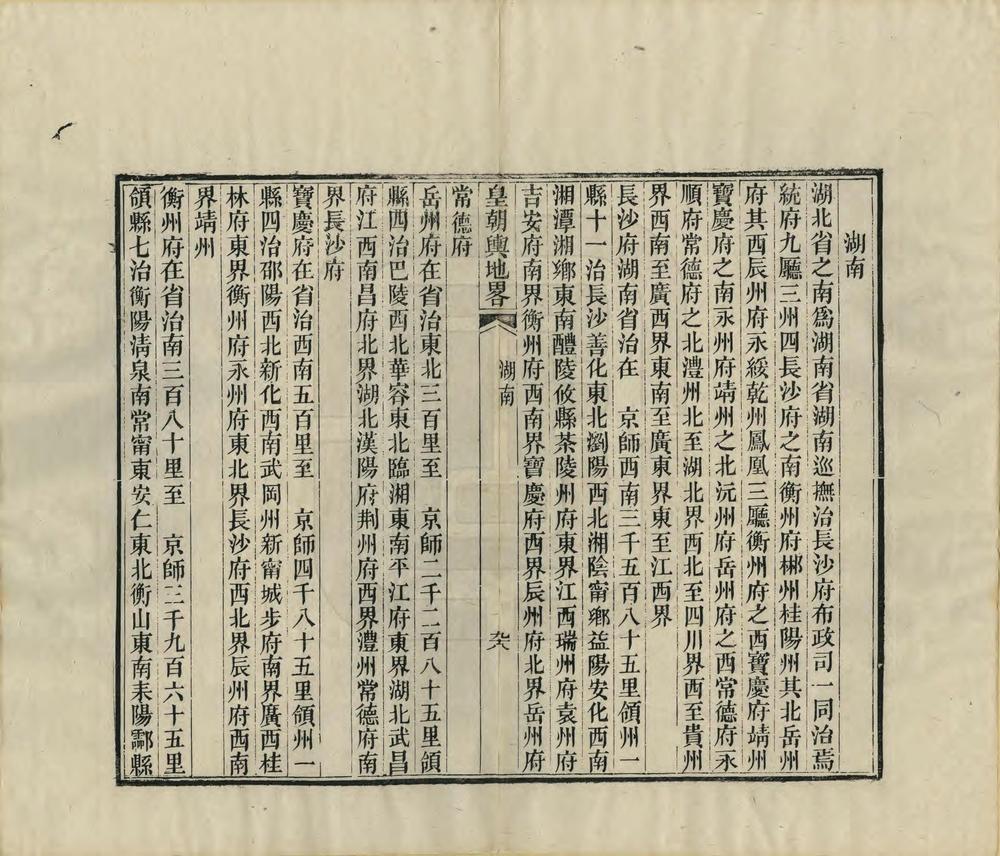 湖南
湖北省之南爲湖南省湖南巡撫治長沙府布政司一同治焉
統府九廳三州四長沙府之南衡州府郴州桂陽州其北岳州
府其西辰州府永綏乾州鳳凰三廳衡州府之西寶慶府靖州
寶慶府之南永州府靖州之北沅州府岳州府之西常德府永
順府常德府之北澧州北至湖北界西北至四川界西至貴州
界西南至廣西界東南至廣東界東至江西界
長沙府湖南省治在 京師西南三千五百八十五里領州一
縣十一治長沙善化東北瀏陽西北湘陰甯鄉益陽安化西南
湘潭湘鄉東南醴陵攸縣茶陵州府東界江西瑞州府袁州府
吉安府南界衡州府西南界寶慶府西界辰州府北界岳州府
皇朝輿地畧 湖南 六
常德府
岳州府在省治東北三百里至 京師二千二百八十五里領
縣四治巴陵西北華容東北臨湘東南平江府東界湖北武昌
府江西南昌府北界湖北漢陽府荆州府西界澧州常德府南
界長沙府
寶慶府在省治西南五百里至 京師四千八十五里領州一
縣四治邵陽西北新化西南武岡州新甯城步府南界廣西桂
林府東界衡州府永州府東北界長沙府西北界辰州府西南
界靖州
衡州府在省治南三百八十里至 京師三千九百六十五里
領縣七治衡陽淸泉南常甯東安仁東北衡山東南耒陽酃縣